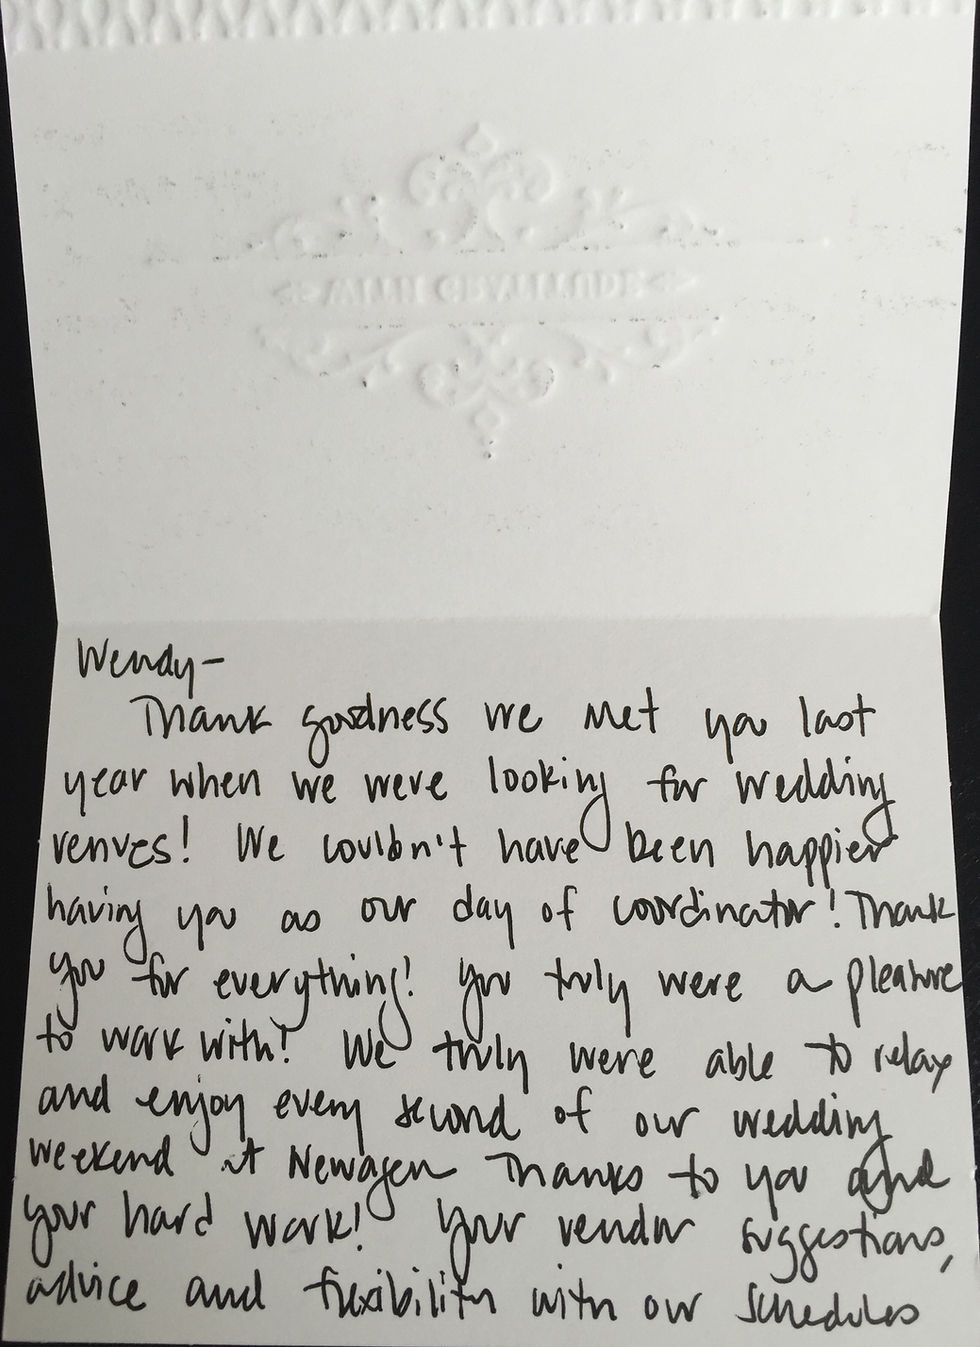 WITH GRATITUDE
Wendy-
Thank goodness we met you last
year when we were looking for wedding
venues! We couldn't have been happier
having you as our day of coordinator! Thank
you for everything! You truly were a pleasure
to work with! We truly were able to relax
and enjoy every second of our wedding
weekend at Newagen Thanks to you and
your hard work! Your vendor suggestions,
advice and flexibility with our schedules